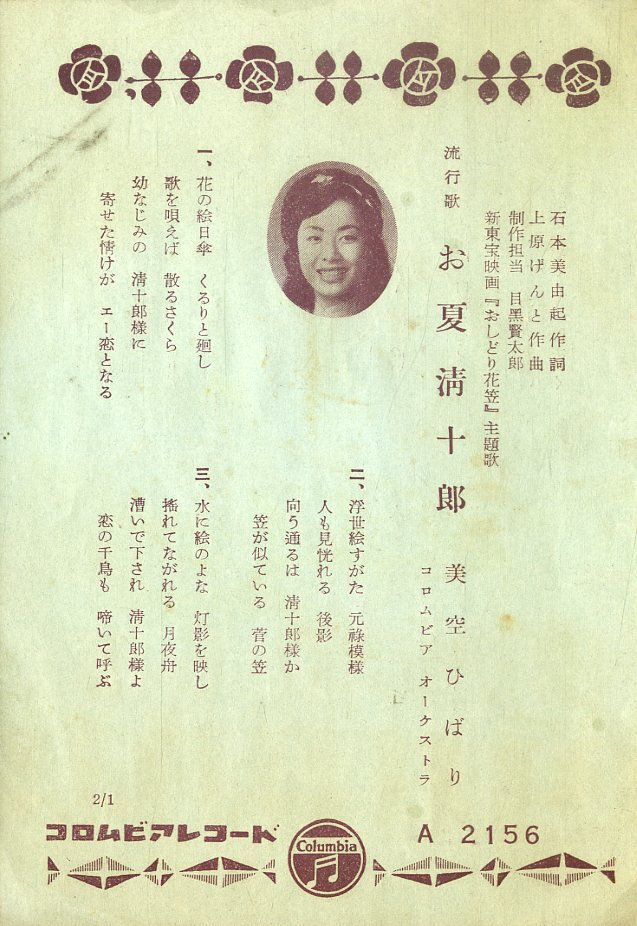 石本美由起作詞
上原げんと作曲
制作担当 目黒賢太郎
新東宝映画『おしどり花笠』主題歌
流行歌 お夏清十郎 美空ひばり
コロムビア オーケストラ
一、花の絵日傘 くるりと廻し
歌を唄えば 散るさくら
幼なじみの 清十郎様に
寄せた情けが エー恋となる
二、浮世絵すがた 元祿模様
人も見恍れる 後影
向う通るは 清十郎様か
笠が似ている 菅の笠
三、水に絵のよな 灯影を映し
搖れてながれる 月夜舟
漕いで下され 清十郎様よ
恋の千鳥も 啼いて呼ぶ
2/1
コロムビアレコード
Columbia
A 2156